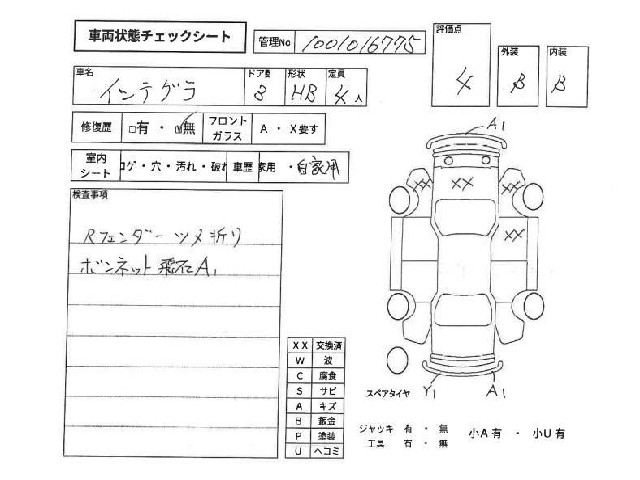 車両状態チェックシート
管理No 1001016775
評価点 4
外装 B
内装 B
車名 インテグラ
ドア数 3 形状 HB 定員 4人
修復歴 □有 ・ ☑無 フロントガラス A ・ X要す
室内シート コゲ・穴・汚れ・破れ 車歴 家用 ・自家用
検査事項
Rフェンダーツメ折り
ボンネット飛石A1
A1
XX
XX
XX
XX
Y1
A1
スペアタイヤ
XX 交換済
W 波
C 腐食
S サビ
A キズ
B 鈑金
P 塗装
U ヘコミ
ジャッキ 有 ・ 無
工具 有 ・ 無
小A有 ・ 小U有